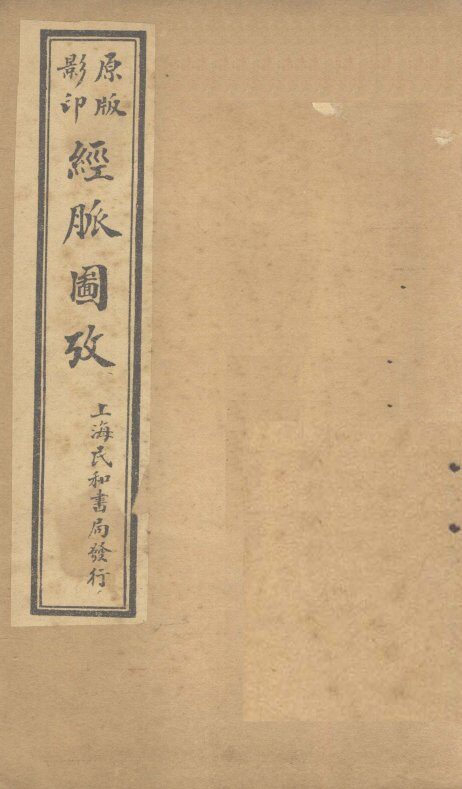 原版
影印
經脈圖攷
上海民和書局發行